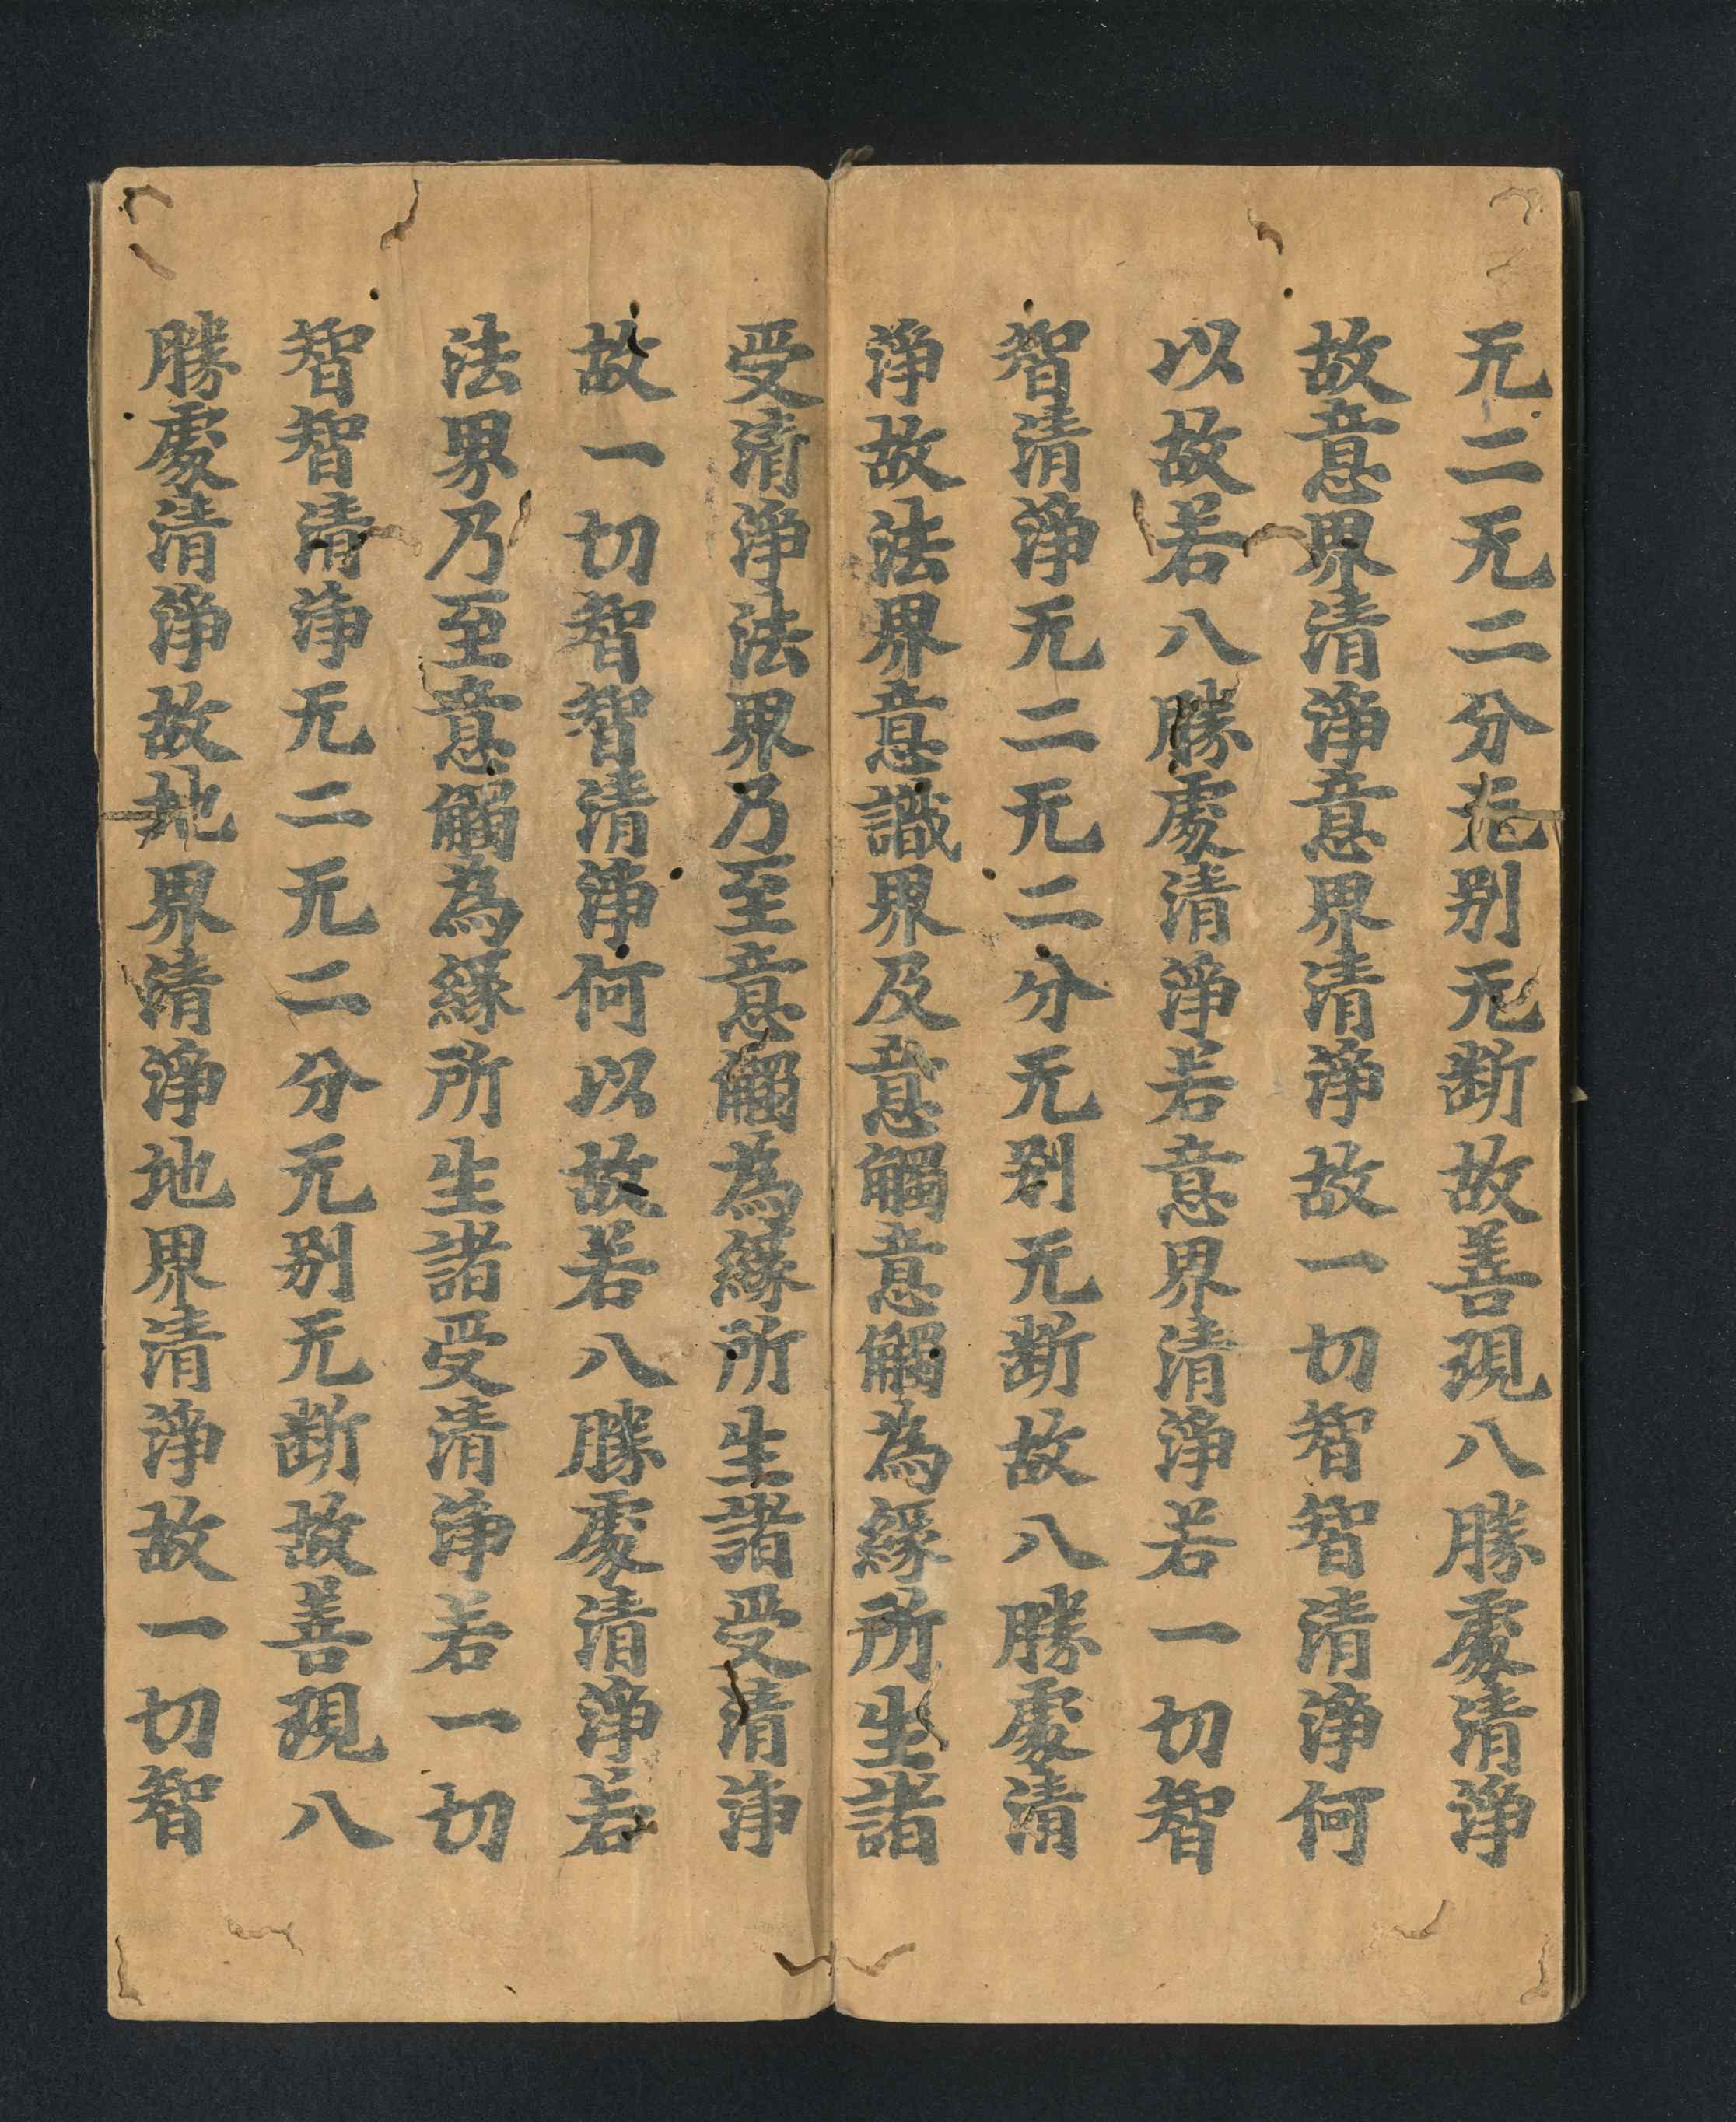 无二无二分无别无断故善現八勝處清淨
故意界清淨意界清淨故一切智智清淨何
以故若八勝處清淨若意界清淨若一切智
智清淨无二无二分无别无断故八勝處清
淨故法界意識界及意觸意觸為緣所生諸
受清淨法界乃至意觸為緣所生諸受清淨
故一切智智清淨何以故若八勝處清淨若
法界乃至意觸為緣所生諸受清淨若一切
智智清淨无二无二分无别无断故善現八
勝處清淨故地界清淨地界清淨故一切智